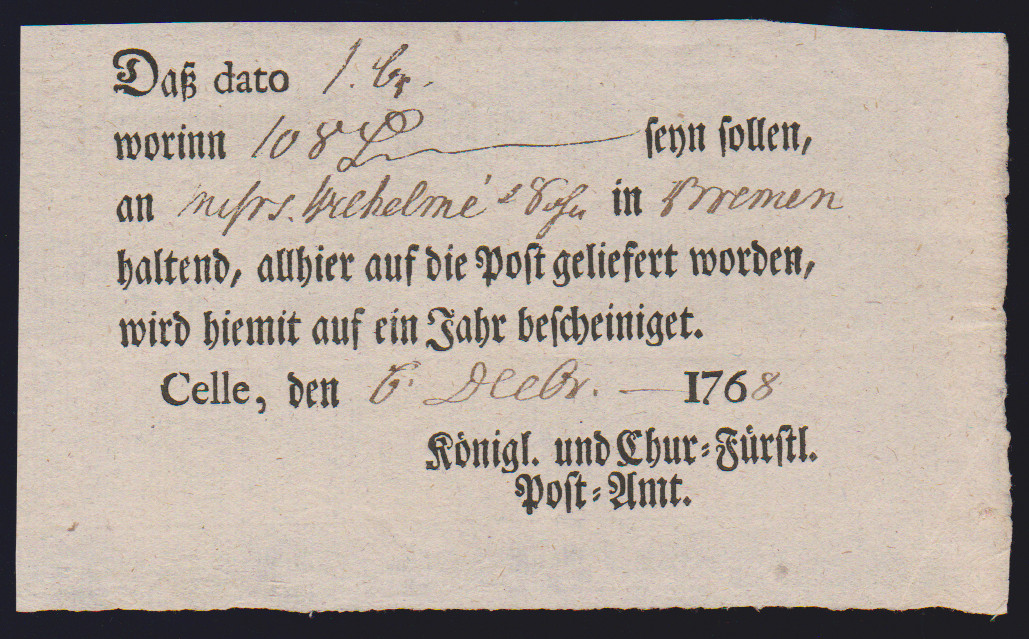 Daß dato 1. br.
worinn 108 ſeyn ſollen,
an Wilhelmé & Sohn in Bremen
haltend, allhier auf die Poſt geliefert worden,
wird hiemit auf ein Jahr beſcheiniget.
Celle, den 6. Decbr. — 1768
Königl. und Chur-Fürſtl.
Poſt-Amt.